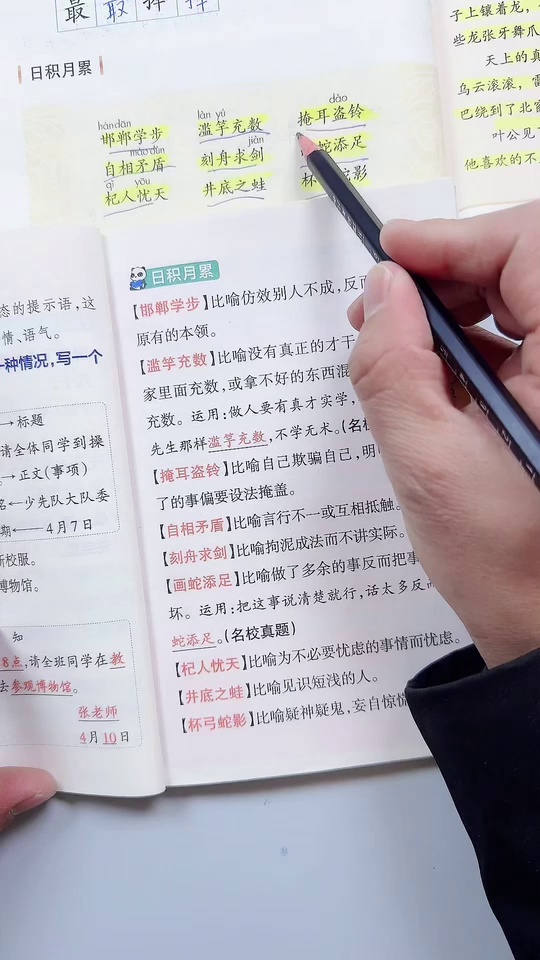 最 取 择
日积月累
hándān làn yú dào
邯郸学步 滥竽充数 掩耳盗铃
máo dùn jiàn
自相矛盾 刻舟求剑 蛇添足
qǐ yōu
杞人忧天 井底之蛙 杯 蛇影
子上镶着龙，
些龙张牙舞爪
天上的真
乌云滚滚，雷
巴绕到了北
叶公见了
他喜欢的不
态的提示语，这
情、语气。
一种情况，写一个
→标题
请全体同学到操
→正文(事项)
名←少先队大队委
期←4月7日
新校服。
博物馆。
知
8点，请全班同学在教
去参观博物馆。
张老师
4月10日
日积月累
【邯郸学步】比喻仿效别人不成，反而
原有的本领。
【滥竽充数】比喻没有真正的才干
家里面充数，或拿不好的东西混
充数。运用：做人要有真才实学，
先生那样滥竽充数，不学无术。(名校
【掩耳盗铃】比喻自己欺骗自己，明明
了的事偏要设法掩盖。
【自相矛盾】比喻言行不一或互相抵触。
【刻舟求剑】比喻拘泥成法而不讲实际。
【画蛇添足】比喻做了多余的事反而把事
坏。运用：把这事说清楚就行，话太多反而
蛇添足。(名校真题)
【杞人忧天】比喻为不必要忧虑的事情而忧虑。
【井底之蛙】比喻见识短浅的人。
【杯弓蛇影】比喻疑神疑鬼，妄自惊慌